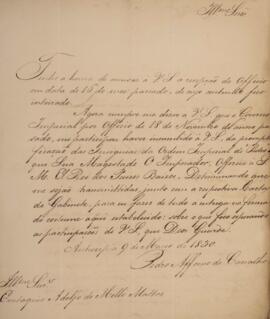 Illmo Senr
Tenho a honra de accusar a V.S. a recepção do Officio
em data de 15 do mez passado, de cujo contendo fico
inteirado.
Agora cumpre me dizer a V.S. que o Governo
Imperial por Officio de 18 de Novembro do anno pas
sado, me participou haver incumbido a V.S. da
das Insignias da Ordem Imperial de Pedro 1º
que Sua Magestade O Imperador, Offerece a S.
M. El Rei dos Paizes Baixos, Determinando que
me sejão transmittidas junto com a respectiva Carta
de Gabinete, para eu fazer de tudo a entrega na forma
do costume aqui estabelecido: sobre o que fico esperando
as participações de V.S. que Deos Guarde.
Antuerpia 9 de Março de 1830
Pedro Affonso de Carvalho
Illmo Senr
Eustaquio Adolfo de Mello Mattos